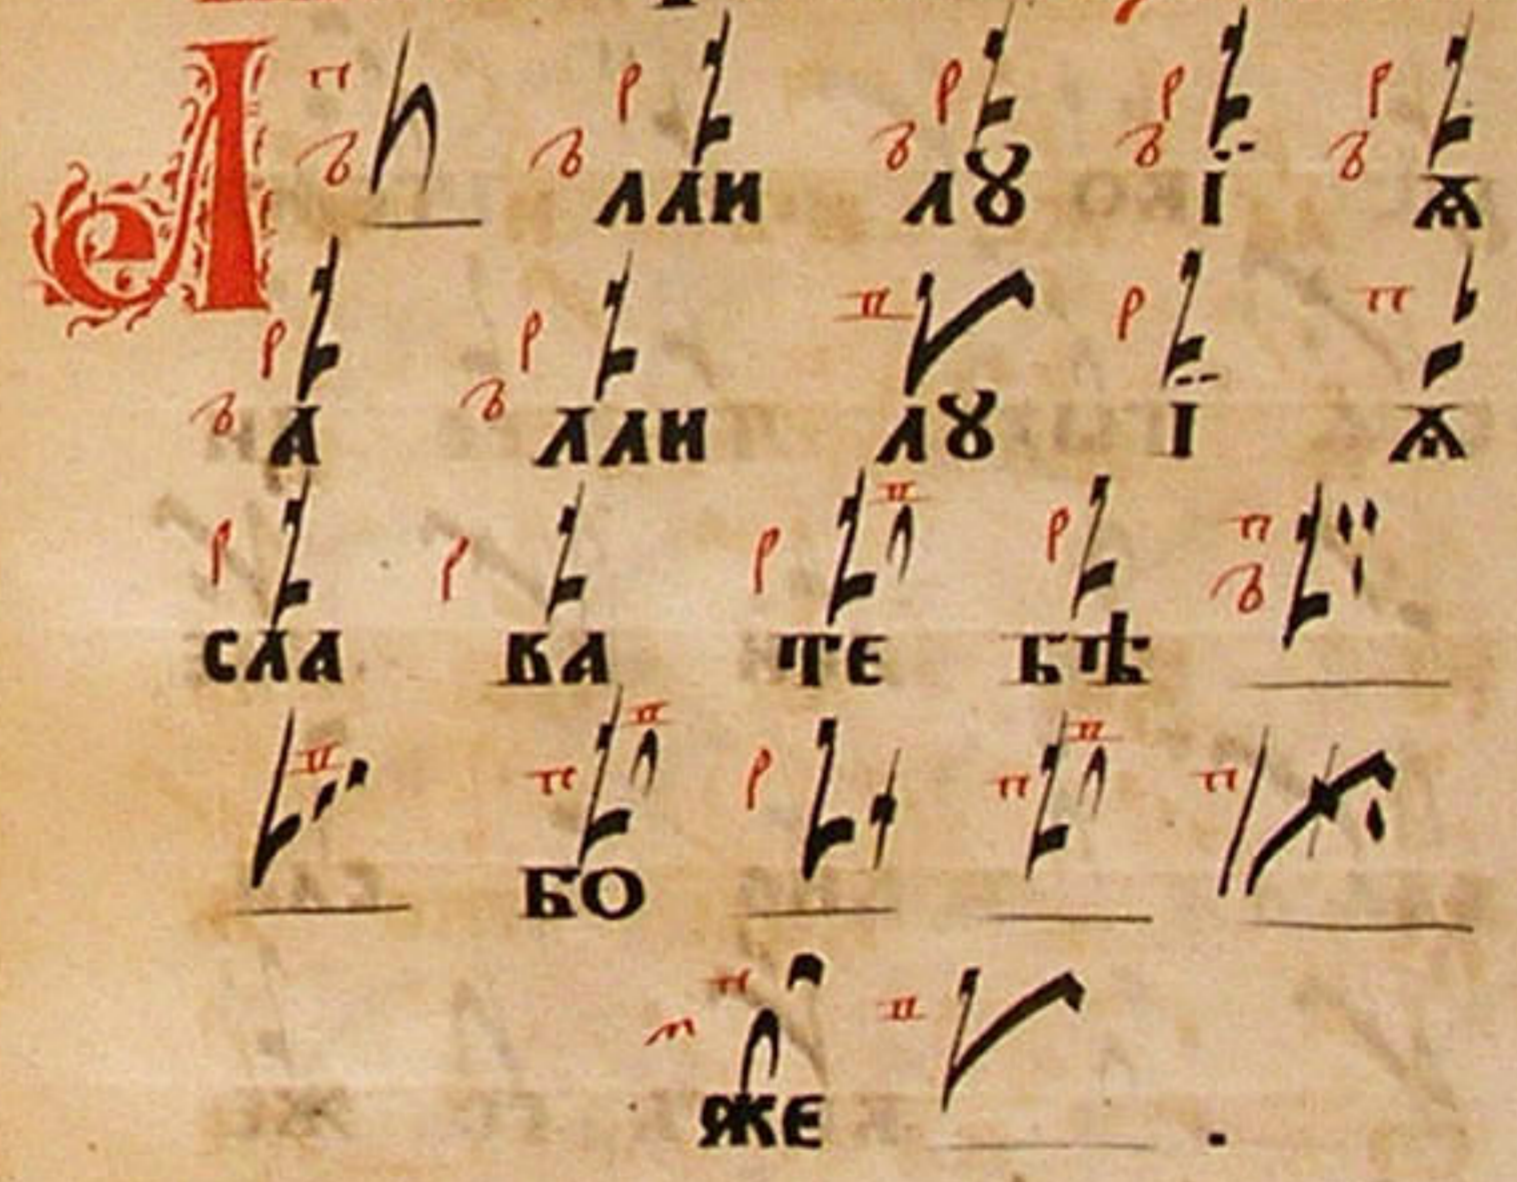 А ллилꙋ ї ѧ
А лли лꙋ ї ѧ
сла ва те бѣ
бо
же .